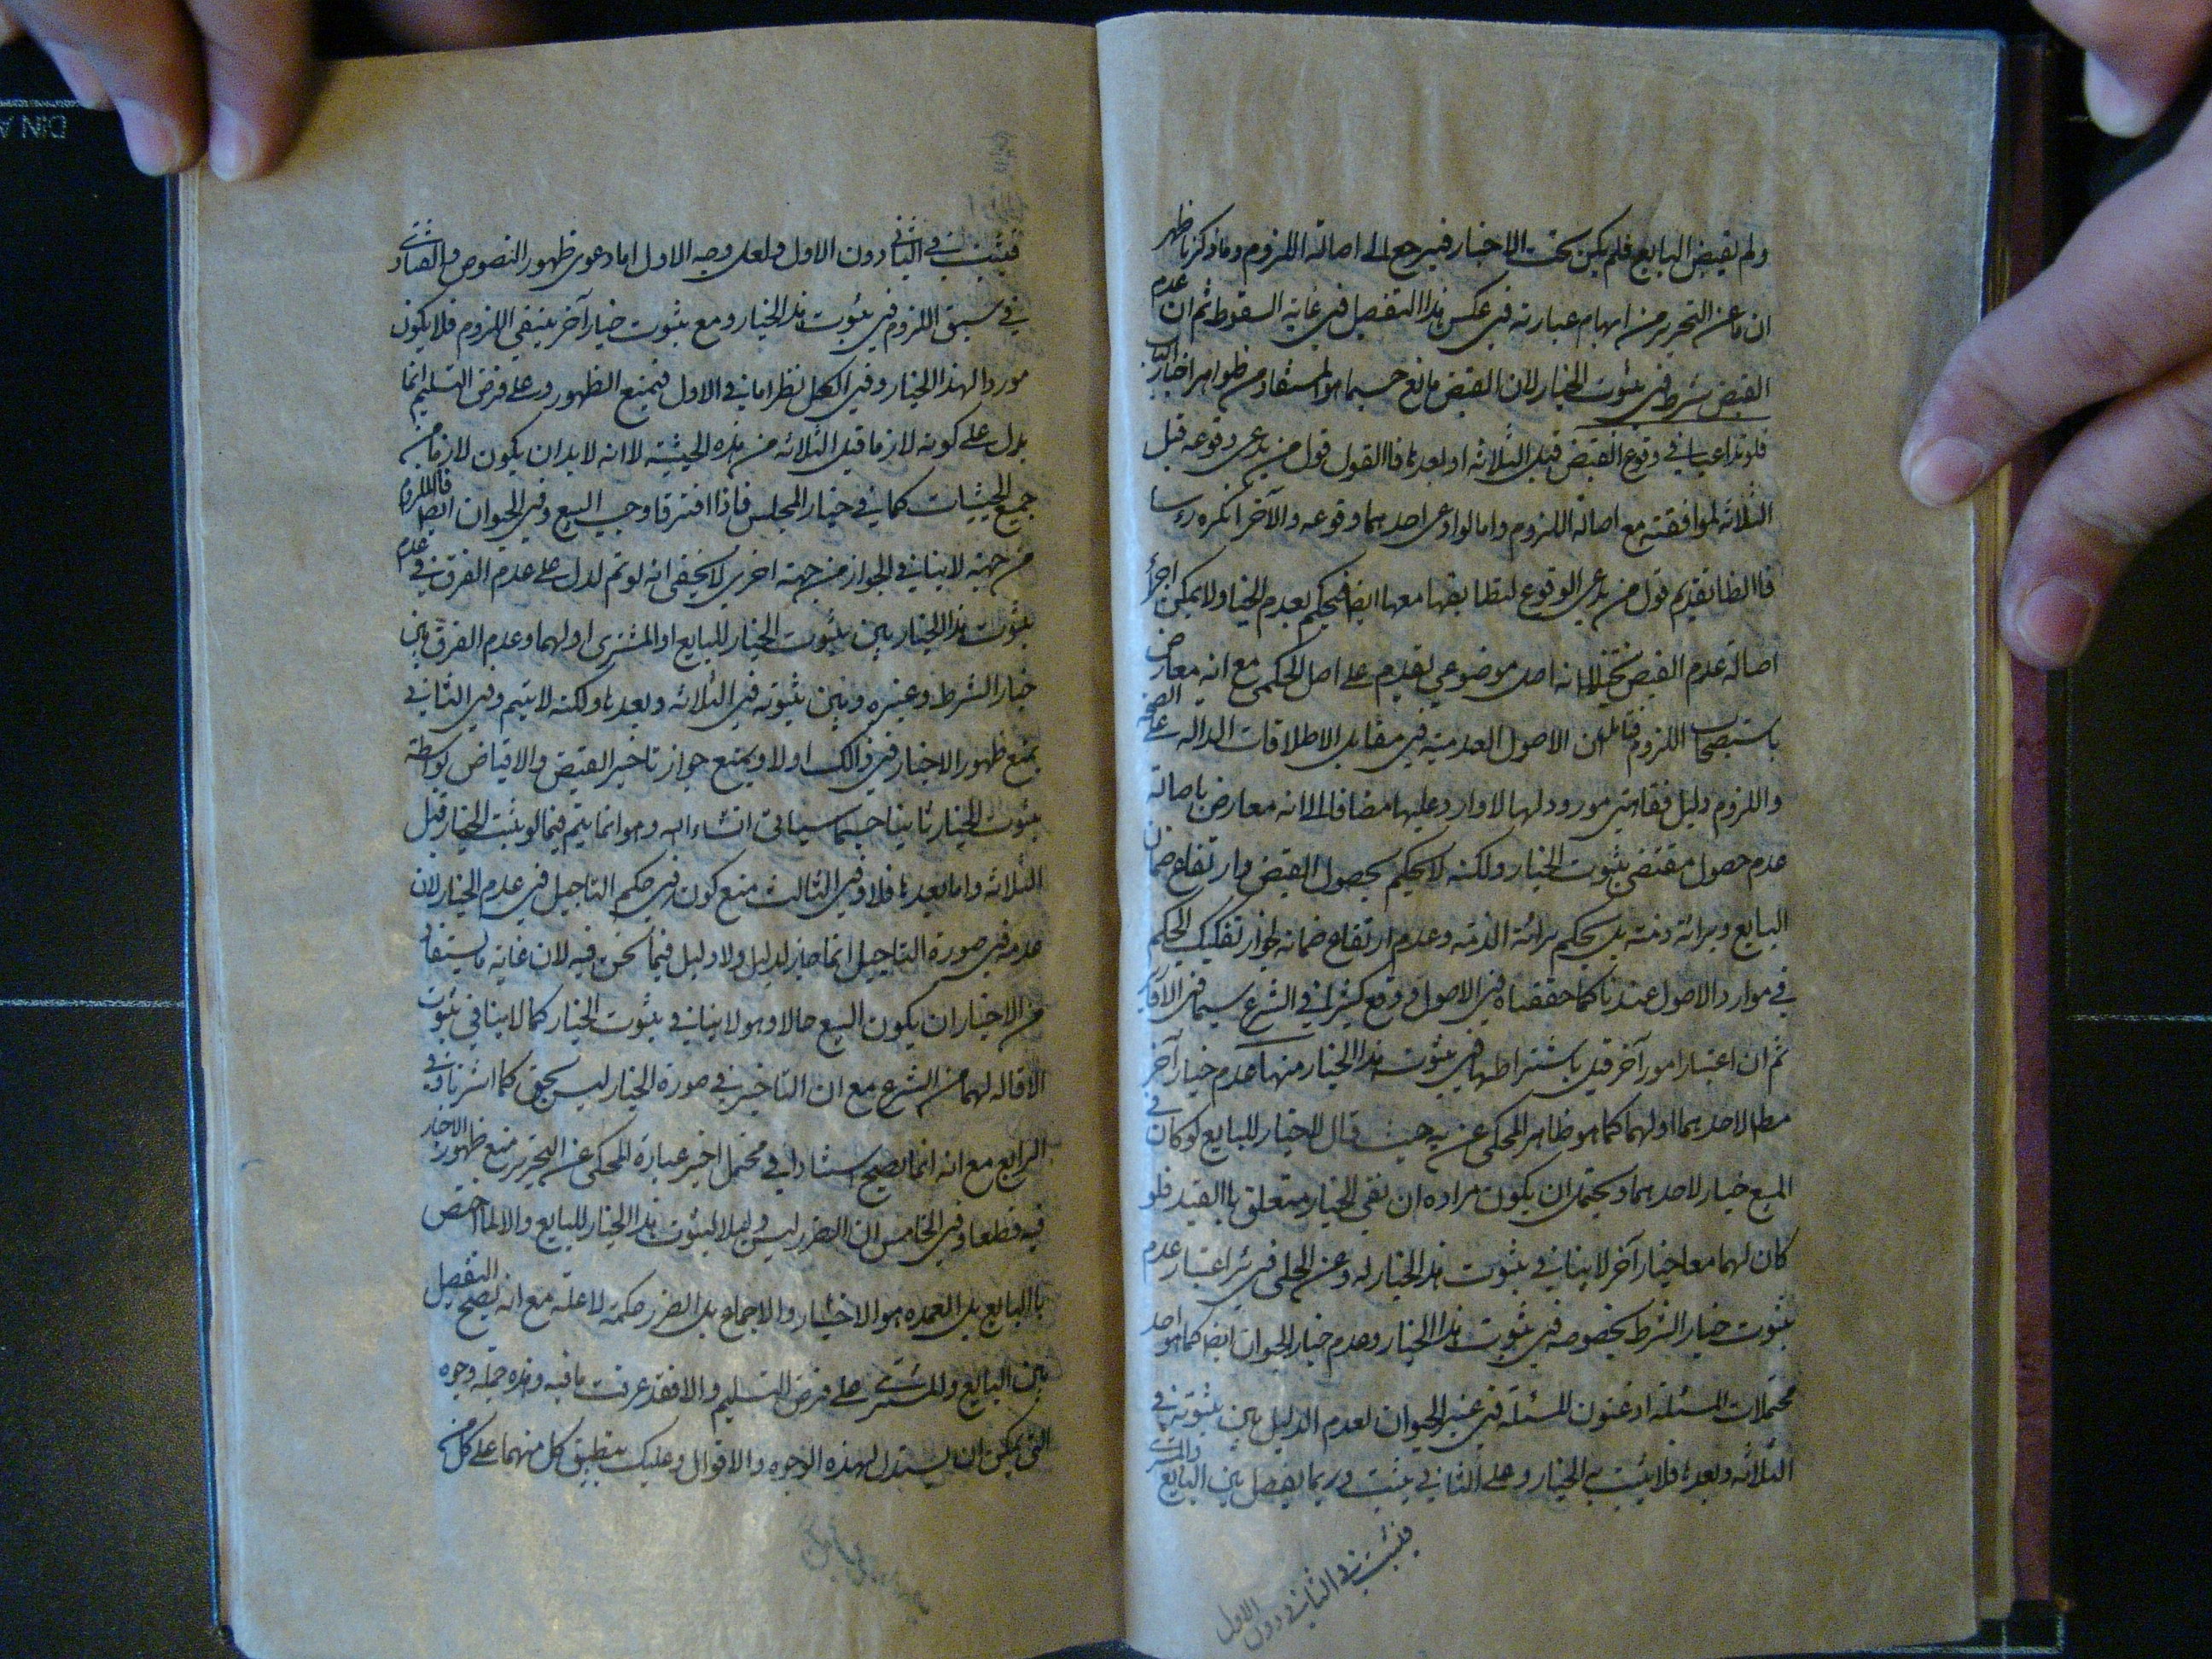 ولم يقبض البايع فلم يكن تحت الاخبار فيرجع الى اصالة اللزوم وما ذكرنا ظهر
ان ما عن التحرير من ابهام عبارته في عكس هذا التفصيل في غاية السقوط ثم ان عدم
القبض شرط في ثبوت الخيار لان القبض مانع حسبما هو المستفاد من ظواهر اخبار الباب
فلو تداعيا في وقوع القبض قبل الثلاثه او بعدها فالقول قول من يدعي وقوعه قبل
الثلاثه لموافقته مع اصالة اللزوم واما لو ادعى احدهما وقوعه والآخر انكره راسا
فالظا تقديم قول من يدعي الوقوع لتطابقها معها ايضا فيحكم بعدم الخيار ولا يمكن اجراء
اصالة عدم القبض تخيلا انه اصل موضوعي يقدم على اصل الحكمي مع انه معارض
باستصحاب اللزوم فان الاصول العدمية في مقابل الاطلاقات الداله على الصحه
واللزوم دليل فقاهتي مورود لها لا وارد عليها مضافا الى انه معارض باصالة
عدم حصول مقتضي ثبوت الخيار ولكنه لا يحكم بحصول القبض وارتفاع ضمان
البايع وبرائة ذمته بل يحكم ببرائة الذمه وعدم ارتفاع ضمانه لجواز تفكيك الحكم
في موارد الاصول عندنا كما حققناه في الاصول ووقع كثيرا في الشرع سيما في الاقارير
ثم ان اعتبار امور آخر قيل باشتراطها في ثبوت هذا الخيار منها عدم خيار آخر
مطلا لاحدهما او لهما كما هو ظاهر المحكى عن ير حيث قال لا خيار للبايع لو كان في
المبيع خيار لاحدهما ويحتمل ان يكون مراده ان نفي الخيار متعلق بالقيد فلو
كان لهما معا خيار آخر لا ينافي ثبوت هذا الخيار له وعن الحلي في ئر اعتبار عدم
ثبوت خيار الشرط بخصوصه في ثبوت هذا الخيار وعدم خيار الحيوان ايضا كما هو احد
محتملات المسئلة او عنون المسئله في غير الحيوان لعدم الدليل بين ثبوته في
الثلاثه وبعدها فلا يثبت به الخيار وعلى الثاني يثبت وربما يفصل بين البايع والمشتري
فيثبت في الثاني دون الاول
فيثبت في الثاني دون الاول ولعل وجه الاول اما دعوى ظهور النصوص والفتاوى
في سبق اللزوم في ثبوت هذا الخيار ومع ثبوت خيار آخر ينتفي اللزوم فلا يكون
موردا لهذا الخيار وفي الكل نظر اما في الاول فيمنع الظهور وعلى فرض التسليم انما
يدل على كونه لازما قبل الثلاثه من هذه الحيثية لا انه لا بد ان يكون لازما من
جميع الحيثيات كما في خيار المجلس فاذا افترقا وجب البيع وفي الحيوان ايضا فاللزوم
من جهة لا ينافي الجواز من جهة اخرى لا يخفى انه لو تم لدل على عدم الفرق في عدم
ثبوت هذا الخيار بين ثبوت الخيار للبايع او المشتري او لهما وعدم الفرق بين
خيار الشرط وغيره وبين ثبوته في الثلاثه وبعدها ولكنه لا يتم وفي الثاني
بمنع ظهور الاخبار في ذالك اولا وبمنع جواز تاخير القبض والاقباض بواسطة
ثبوت الخيار ثانيا حسبما سياتي انشاء الله وهو انما يتم فيما لو يثبت الخيار قبل
الثلاثه واما بعدها فلا وفي الثالث منع كون في حكم التاجيل في عدم الخيار لان
عدمه في صورة التاجيل انما صار لدليل ولا دليل فيما نحن فيه لان غاية ما يستفاد
من الاخبار ان يكون البيع حالا وهو لا ينافي ثبوت الخيار كما لا ينافي ثبوت
الاقاله لهما من الشرع مع ان التاخير في صورة الخيار ليس بحق كما اشرنا وفي
الرابع مع انه انما يصح استنادا في محتمل اخير عبارة المحكى عن التحرير منع ظهور الاخبار
فيه قطعا وفي الخامس ان الضرر ليس دليلا لثبوت هذا الخيار للبايع والا لما اختص
بالبايع بل العمده هو الاخبار والاجماع بل الضرر حكمة لا علة مع انه يصح التفصيل
بين البايع والمشتري على فرض التسليم والا فقد عرفت ما فيه وهذه جملة وجوه
التي يمكن ان يستدل لهذه الوجوه والاقوال وعليك بتطبيق كل منهما على كل من